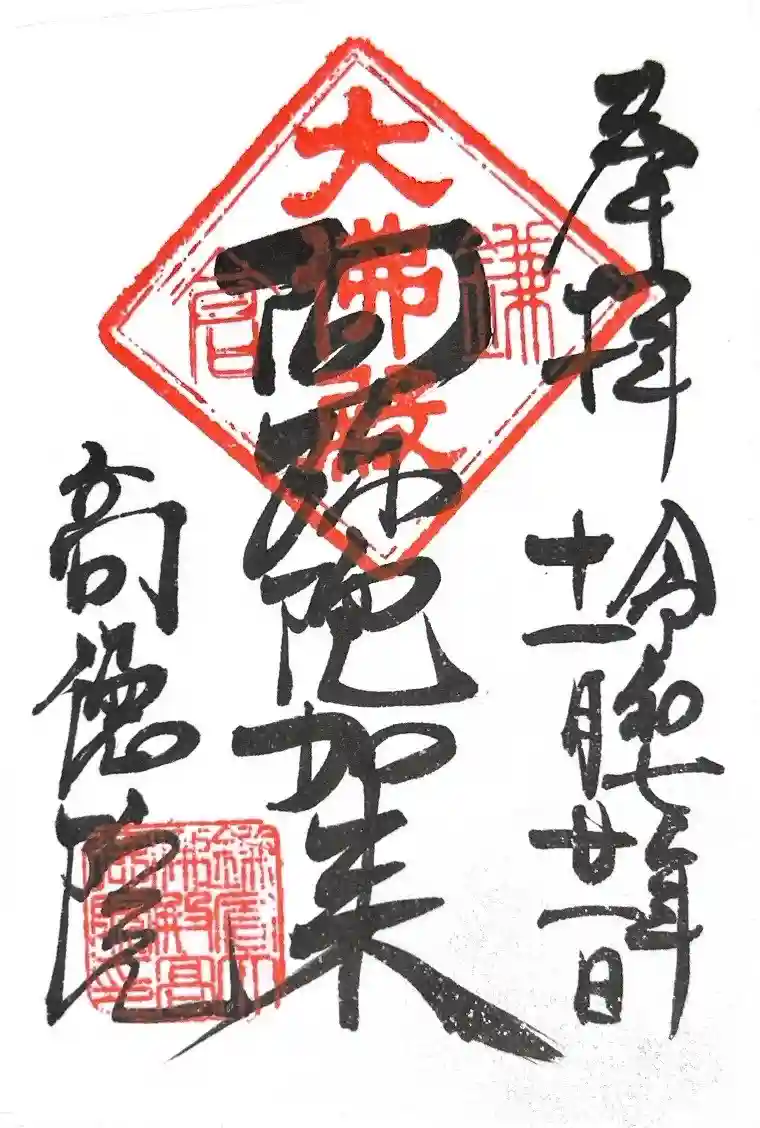 奉拝
令和七年
十一月廿一日
阿弥陀如来
高徳院
大佛殿
鎌倉